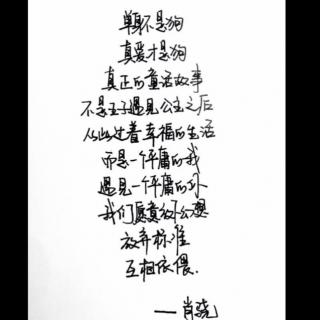 单身不是狗
真爱才是狗
真正的童话故事
不是王子遇见公主之后
从此过着幸福的生活
而是一个平庸的我
遇见一个平庸的你
我们愿意放下幻想
放弃标准
互相依偎.
——肖骁